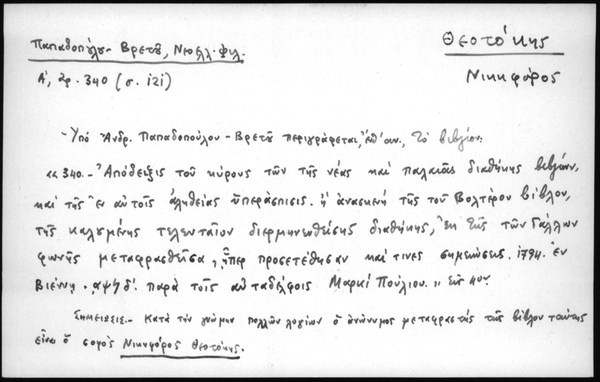 Παπαδοπούλου-Βρετοῦ, Νεοελλ. Φιλ.
Α', ἀρ. 340 (σ. 121)
Θεοτόκης
Νικηφόρος
-Ὑπὸ Ἀνδρ. Παπαδοπούλου-Βρετοῦ περιγράφεται, τὸ βιβλίον:
«340.- Ἀπόδειξις τοῦ κύρους τῶν τῆς νέας καὶ παλαιᾶς διαθήκης βιβλίων,
καὶ τῆς ἐν αὐτοῖς ἀληθείας ὑπεράσπισις. ἢ ἀνασκευὴ τῆς τοῦ Βολτέρου βίβλου,
τῆς καλουμένης τελευταῖον διερμηνευθείσης διαθήκης, ἐκ τῆς τῶν Γάλλων
φωνῆς μεταφρασθεῖσα, ᾗπερ προσετέθησαν καὶ τινες σημειώσεις. 1794. Ἐν
Βιέννῃ. αψϟδ'. παρὰ τοῖς αὐταδέλφοις Μαρκὶ Πούλιου.» εἰς 4ον.
Σημείωσις.- Κατὰ τὴν γνώμην πολλῶν λογίων ὁ ἀνώνυμος μεταφραστὴς τῆς βίβλου ταύτης
εἶναι ὁ σοφὸς Νικηφόρος Θεοτόκης.